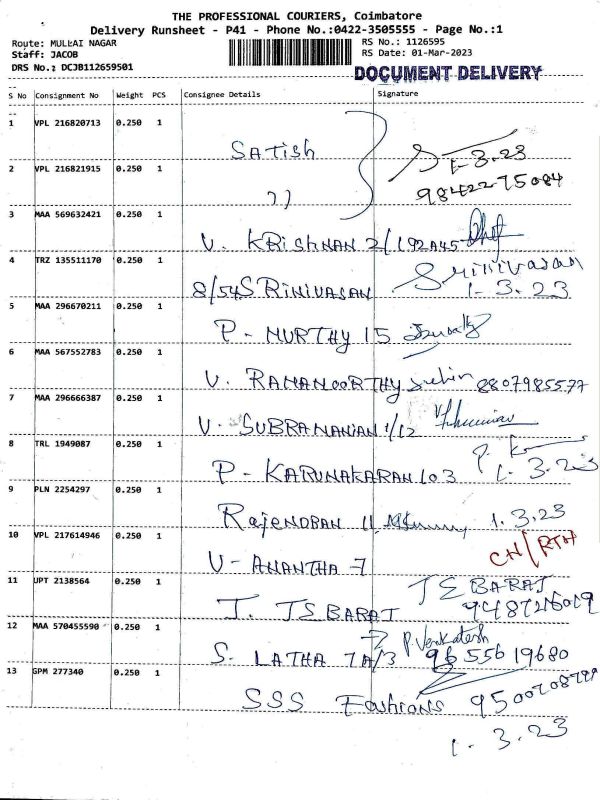 THE PROFESSIONAL COURIERS, Coimbatore
Delivery Runsheet - P41 - Phone No.:0422-3505555 - Page No.:1
Route: MULLAI NAGAR RS No.: 1126595
Staff: JACOB RS Date: 01-Mar-2023
DRS No.: DCJB112659501 DOCUMENT DELIVERY
S No Consignment No Weight PCS Consignee Details Signature
1 VPL 216820713 0.250 1
SATISH 1-3.23
2 VPL 216821915 0.250 1 98422 75084
11
3 MAA 569632421 0.250 1
V. KRISHNAN 2/192A45
4 TRZ 135511170 0.250 1 Srinivasan
8/54 SRINIVASAN 1-3.23
5 MAA 296670211 0.250 1
P- MURTHY 15
6 MAA 567552783 0.250 1
V. RAMAMOORTHY 8807985577
7 MAA 296666387 0.250 1
V. SUBRAMANIAN 1/12
8 TRL 1949087 0.250 1 P. K
P- KARUNAKARAN 103 1-3.23
9 PLN 2254297 0.250 1
Rajendran 11 1.3.23
10 VPL 217614946 0.250 1 CN/RTH
V- ANANTHA 7
11 UPT 2138564 0.250 1 J E BARAT
J. JEBARAJ
12 MAA 570455590 0.250 1 P. Venkatesh
S. LATHA 7A/3 96556 19680
13 GPM 277340 0.250 1
SSS Fashions
1-3.23